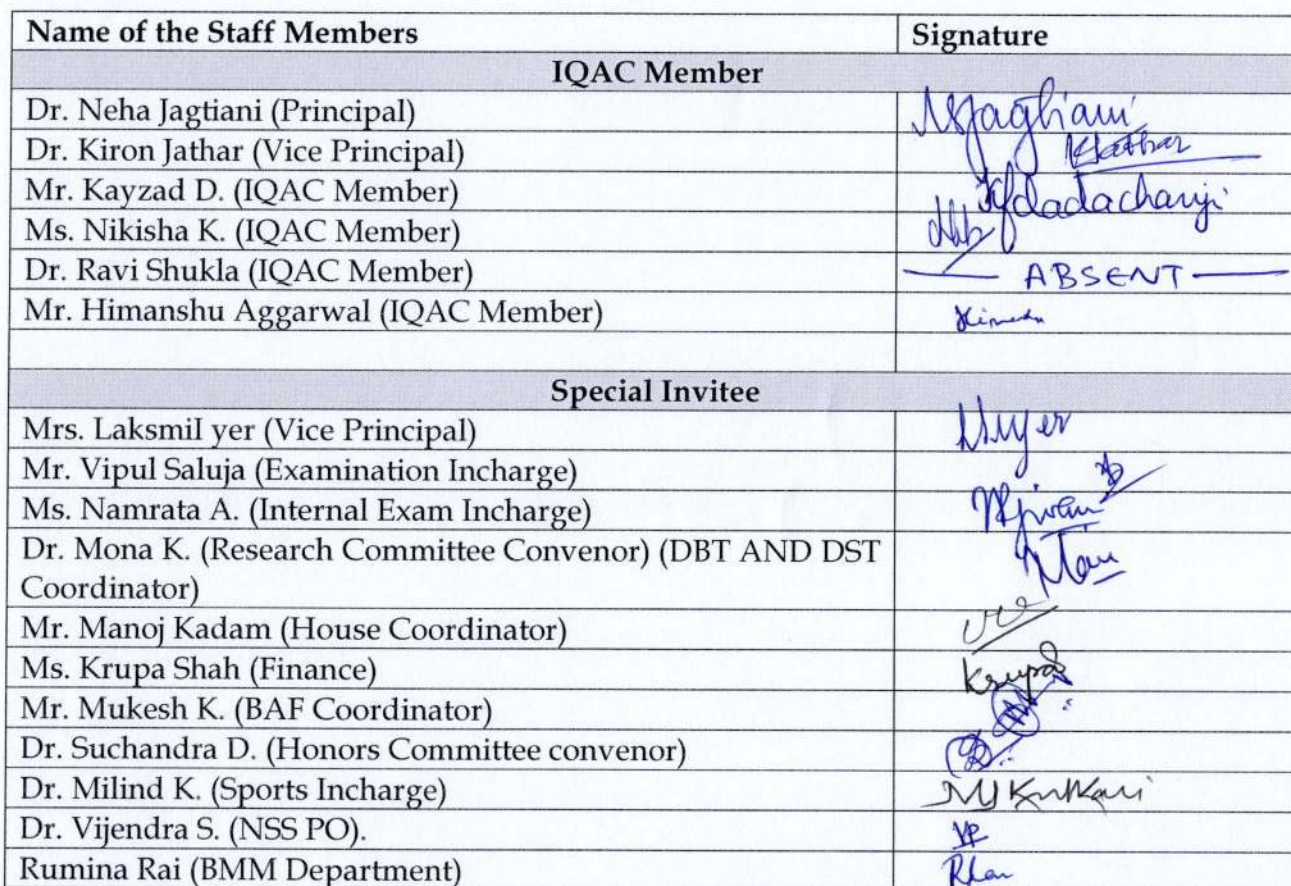 Name of the Staff Members Signature
IQAC Member
Dr. Neha Jagtiani (Principal) NJagtiani
Dr. Kiron Jathar (Vice Principal) KJathar
Mr. Kayzad D. (IQAC Member) Kfdadachanji
Ms. Nikisha K. (IQAC Member)
Dr. Ravi Shukla (IQAC Member) ABSENT
Mr. Himanshu Aggarwal (IQAC Member)
Special Invitee
Mrs. LaksmiI yer (Vice Principal)
Mr. Vipul Saluja (Examination Incharge)
Ms. Namrata A. (Internal Exam Incharge)
Dr. Mona K. (Research Committee Convenor) (DBT AND DST
Coordinator)
Mr. Manoj Kadam (House Coordinator)
Ms. Krupa Shah (Finance) Krupa
Mr. Mukesh K. (BAF Coordinator)
Dr. Suchandra D. (Honors Committee convenor)
Dr. Milind K. (Sports Incharge)
Dr. Vijendra S. (NSS PO).
Rumina Rai (BMM Department)